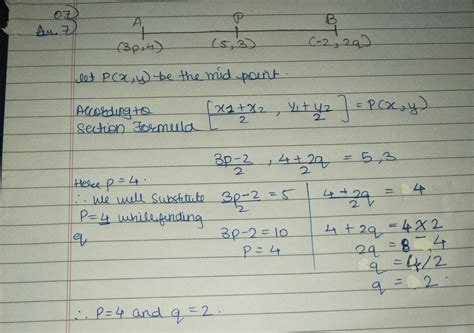 07)
Ans. 7) A P B
(3p,4) (5,3) (-2,2q)
let P(x,y) be the mid point.
According to
Section Formula [x1+x2/2 , y1+y2/2] = P(x,y)
3p-2/2 , 4+2q/2 = 5,3
Hence P=4.
∴ We will Substitute 3p-2/2 = 5 4+2q/2 = 4
P=4 while finding
q
3p-2=10 4+2q=4×2
P=4 2q= 8-4
q = 4/2
q = 2.
∴ P=4 and q=2.